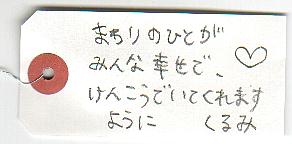 まちりのひとが
みんな幸せで、
けんこうでいてくれます
ように くるみ